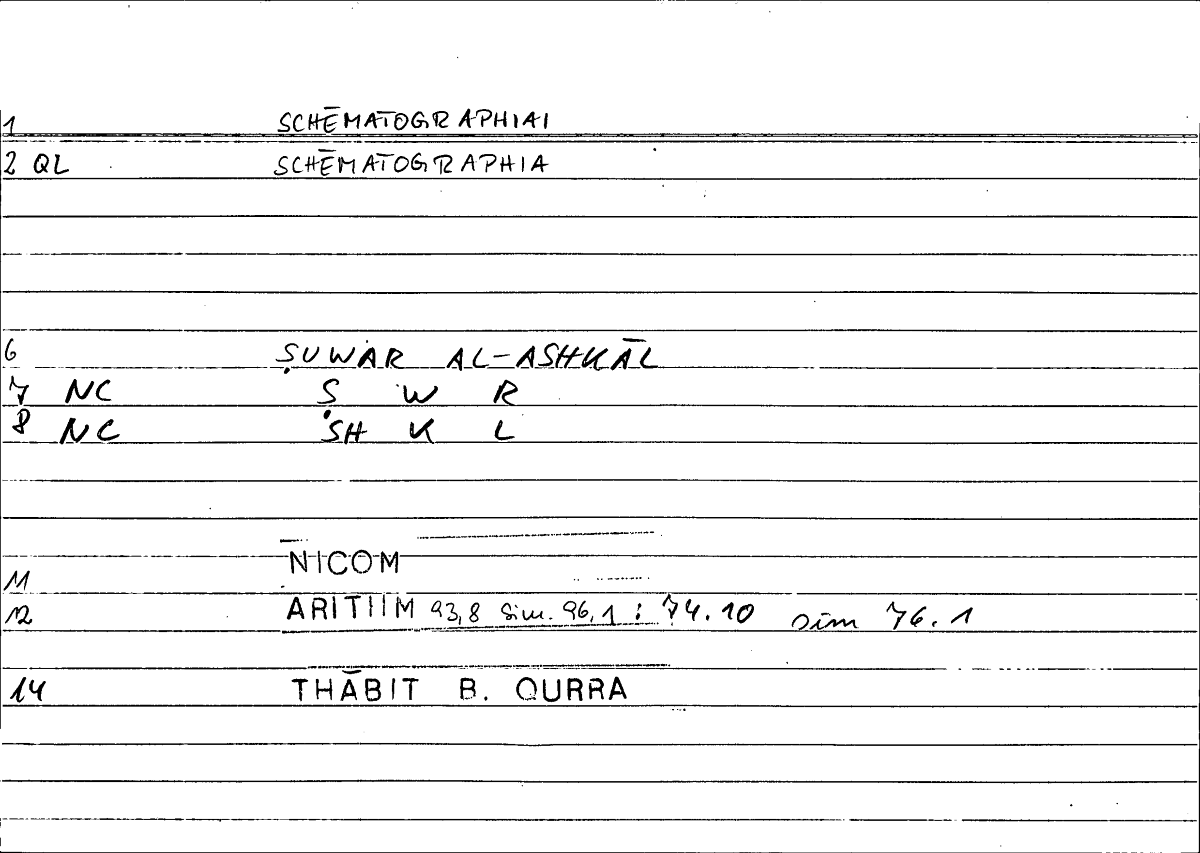 1 SCHĒMATOGRAPHIAI
2 QL SCHĒMATOGRAPHIA
6 ṢUWAR AL-ASHKĀL
7 NC Ṣ W R
8 NC SH K L
11 NICOM
12 ARITHM 93,8 sim. 96,1 : 74.10 sim 76.1
14 THĀBIT B. QURRA